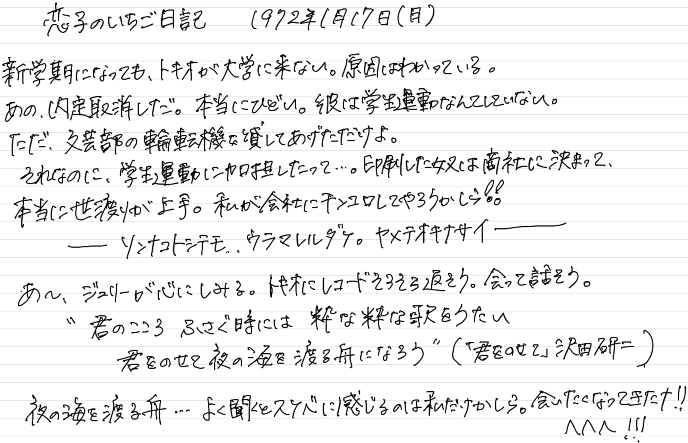 恋子のいちご日記 1972年1月17日(月)
新学期になっても、トキオが大学に来ない。原因はわかっている。
あの、内定取消しだ。本当にひどい。彼は学生運動なんてしていない。
ただ、文芸部の輪転機を貸してあげただけよ。
それなのに、学生運動に加担したって…。印刷した奴は商社に決まって、
本当に世渡りが上手。私が会社にチンコロしてやろうかしら!!
―― ソンナコトシテモ、、ウラマレルダケ。ヤメテオキナサイ ――
あ〜、ジュリーが心にしみる。トキオにレコードそろそろ返そう。会って話そう。
"君のこころ ふさぐ時には 粋な粋な歌をうたい
君をのせて夜の海を渡る舟になろう"(「君をのせて」沢田研二)
夜の海を渡る舟…よく聞くとスケベに感じるのは私だけかしら。会いたくなってきたナ!!
へへへ!!!